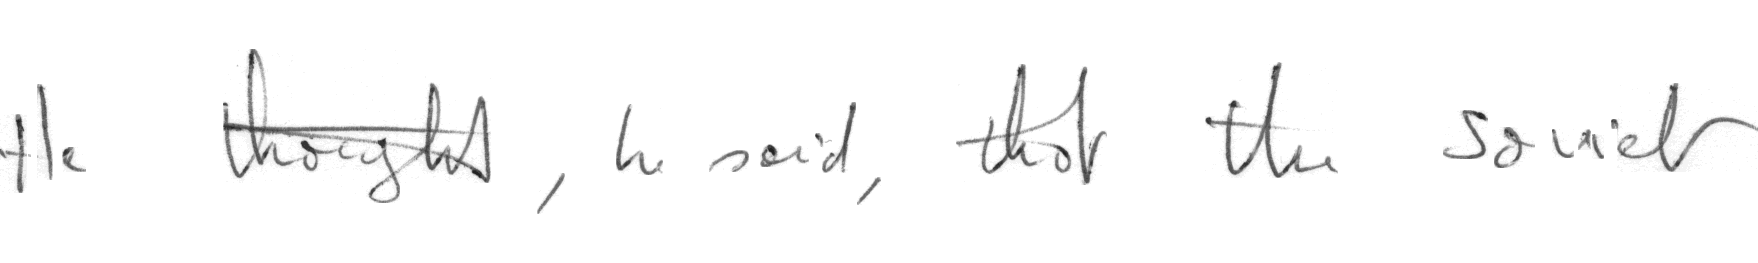 He thought, he said, that the Soviet